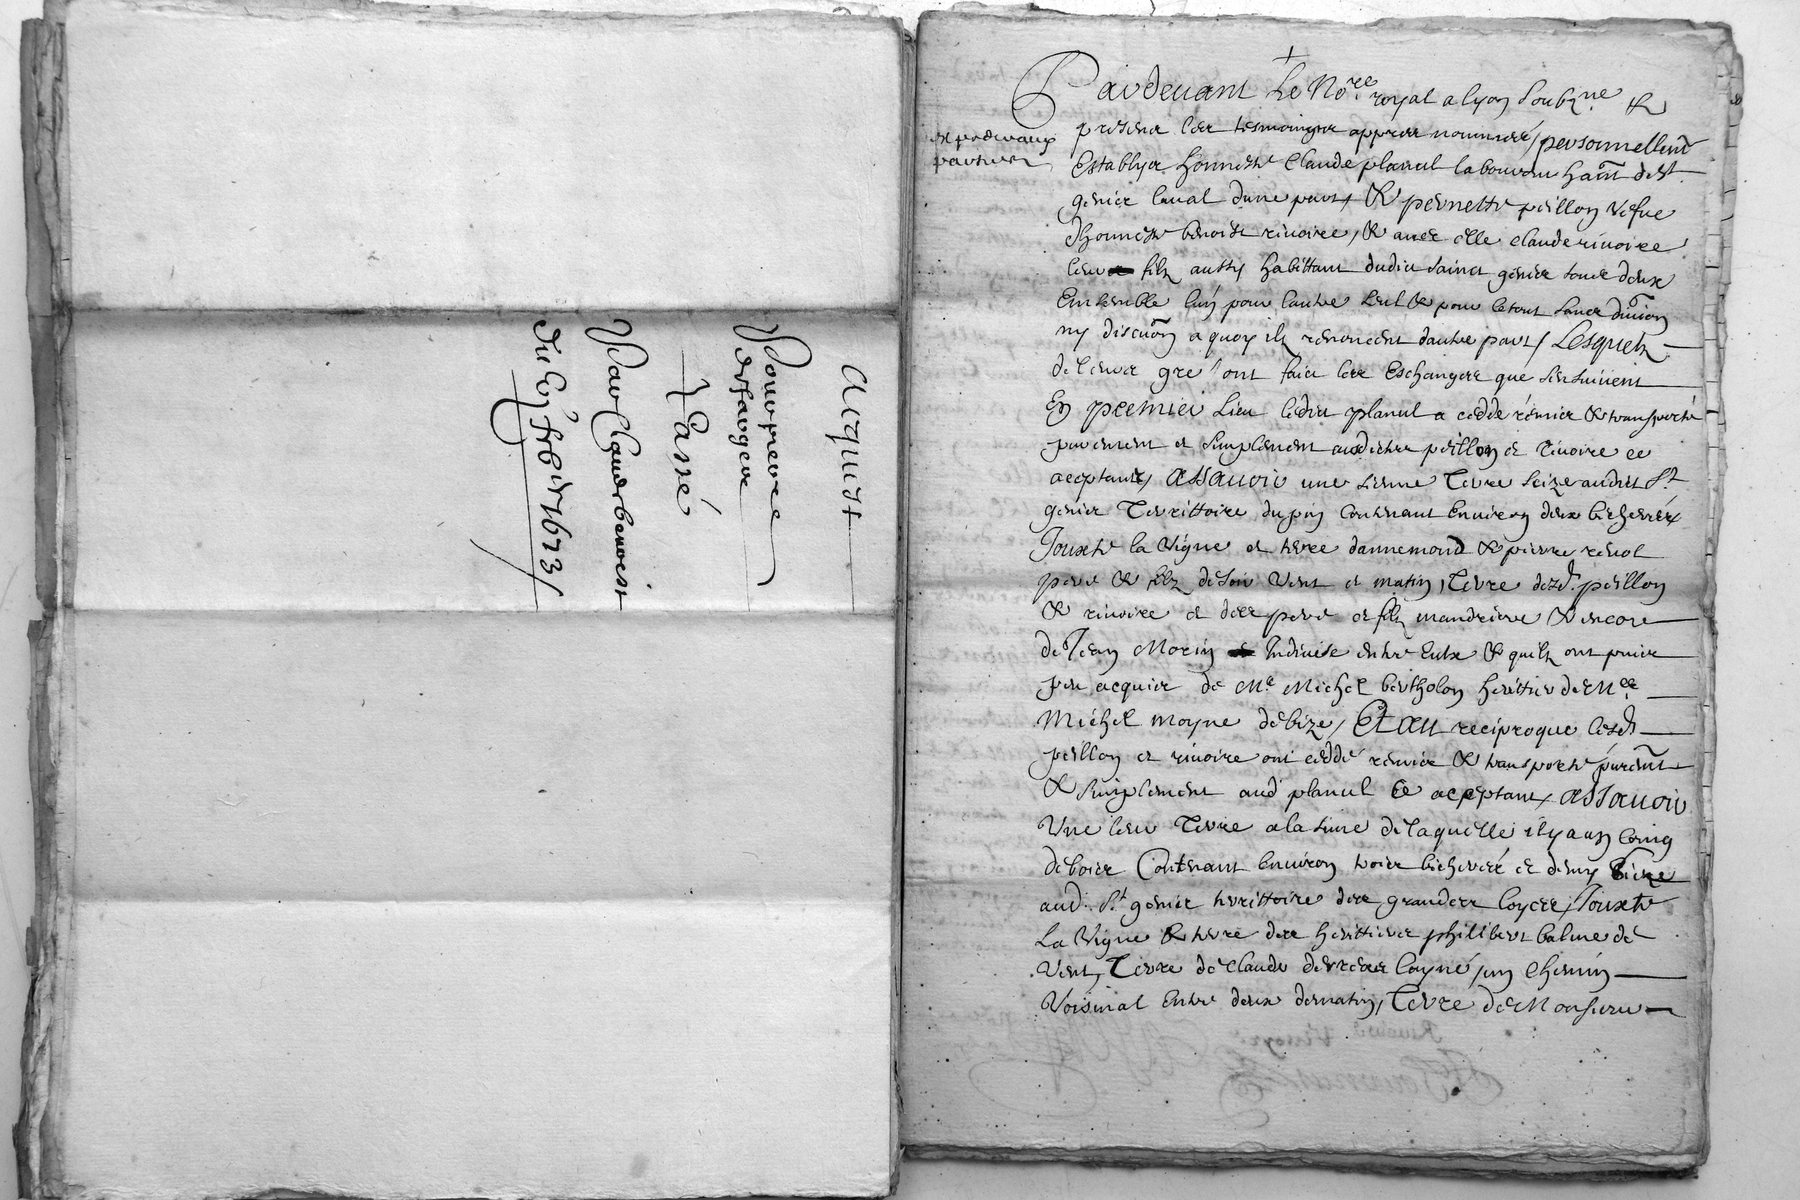 Acquist
Pour pierre
desfarges
Lané
Par Claude benoist
du
1673
Pardevant Le No.re royal a Lyon soubz.ne &
presens les tesmoingtz appres nommés / personnellem.t
Establys honneste Claude planul laboureur ha.nt de S.t
genier laval dune part, & pernette peillon vefve
dhonneste benoist rivoire, & avec elle claude rivoire
leur filz aussy habittant dudit sainct genier tous deux
Ensemble lun pour lautre seul & pour le tout sans division
ny discu.on a quoy ilz renoncent dautre part / Lesquelz
de leurs gre ont faict les Eschanges que sensuivent
En premier Lieu ledit planul a ceddé remier & transporté
purement et simplement ausdictz peillon et rivoire ce
aceptants, assavoir une sienne Terre scize audict S.t
genier Territtoire du pin contenant Environ deux bicherées
Jouxte la Vigne et terre dannemond & pierre revol
pere & filz de soir vent et matin, Terre desd. peillon
& rivoire et des pere et filz mandriere & encore
de Jean Morin Indivise entre Eulx & quilz ont puis
peu acquis de M.e Michel bertholon herittier de M.re
Michel moyne debize, Et au reciproque lesd.
peillon et rivoire ont ceddé remier & transporté purem.nt
& simplement aud. planul ce aceptant, assavoir
Une leur Terre a la sime de laquelle il y a un coing
de bois Contenant Environ trois bicherés et demy Scize
aud. S.t genier territtoire des grandes loyes, Jouxte
La Vigne & terre des herittiers philibert balme de
Vent, Terre de Claude desvres loyné, un chemin
Voisinal Entre deux de matin, Terre de Monsieur